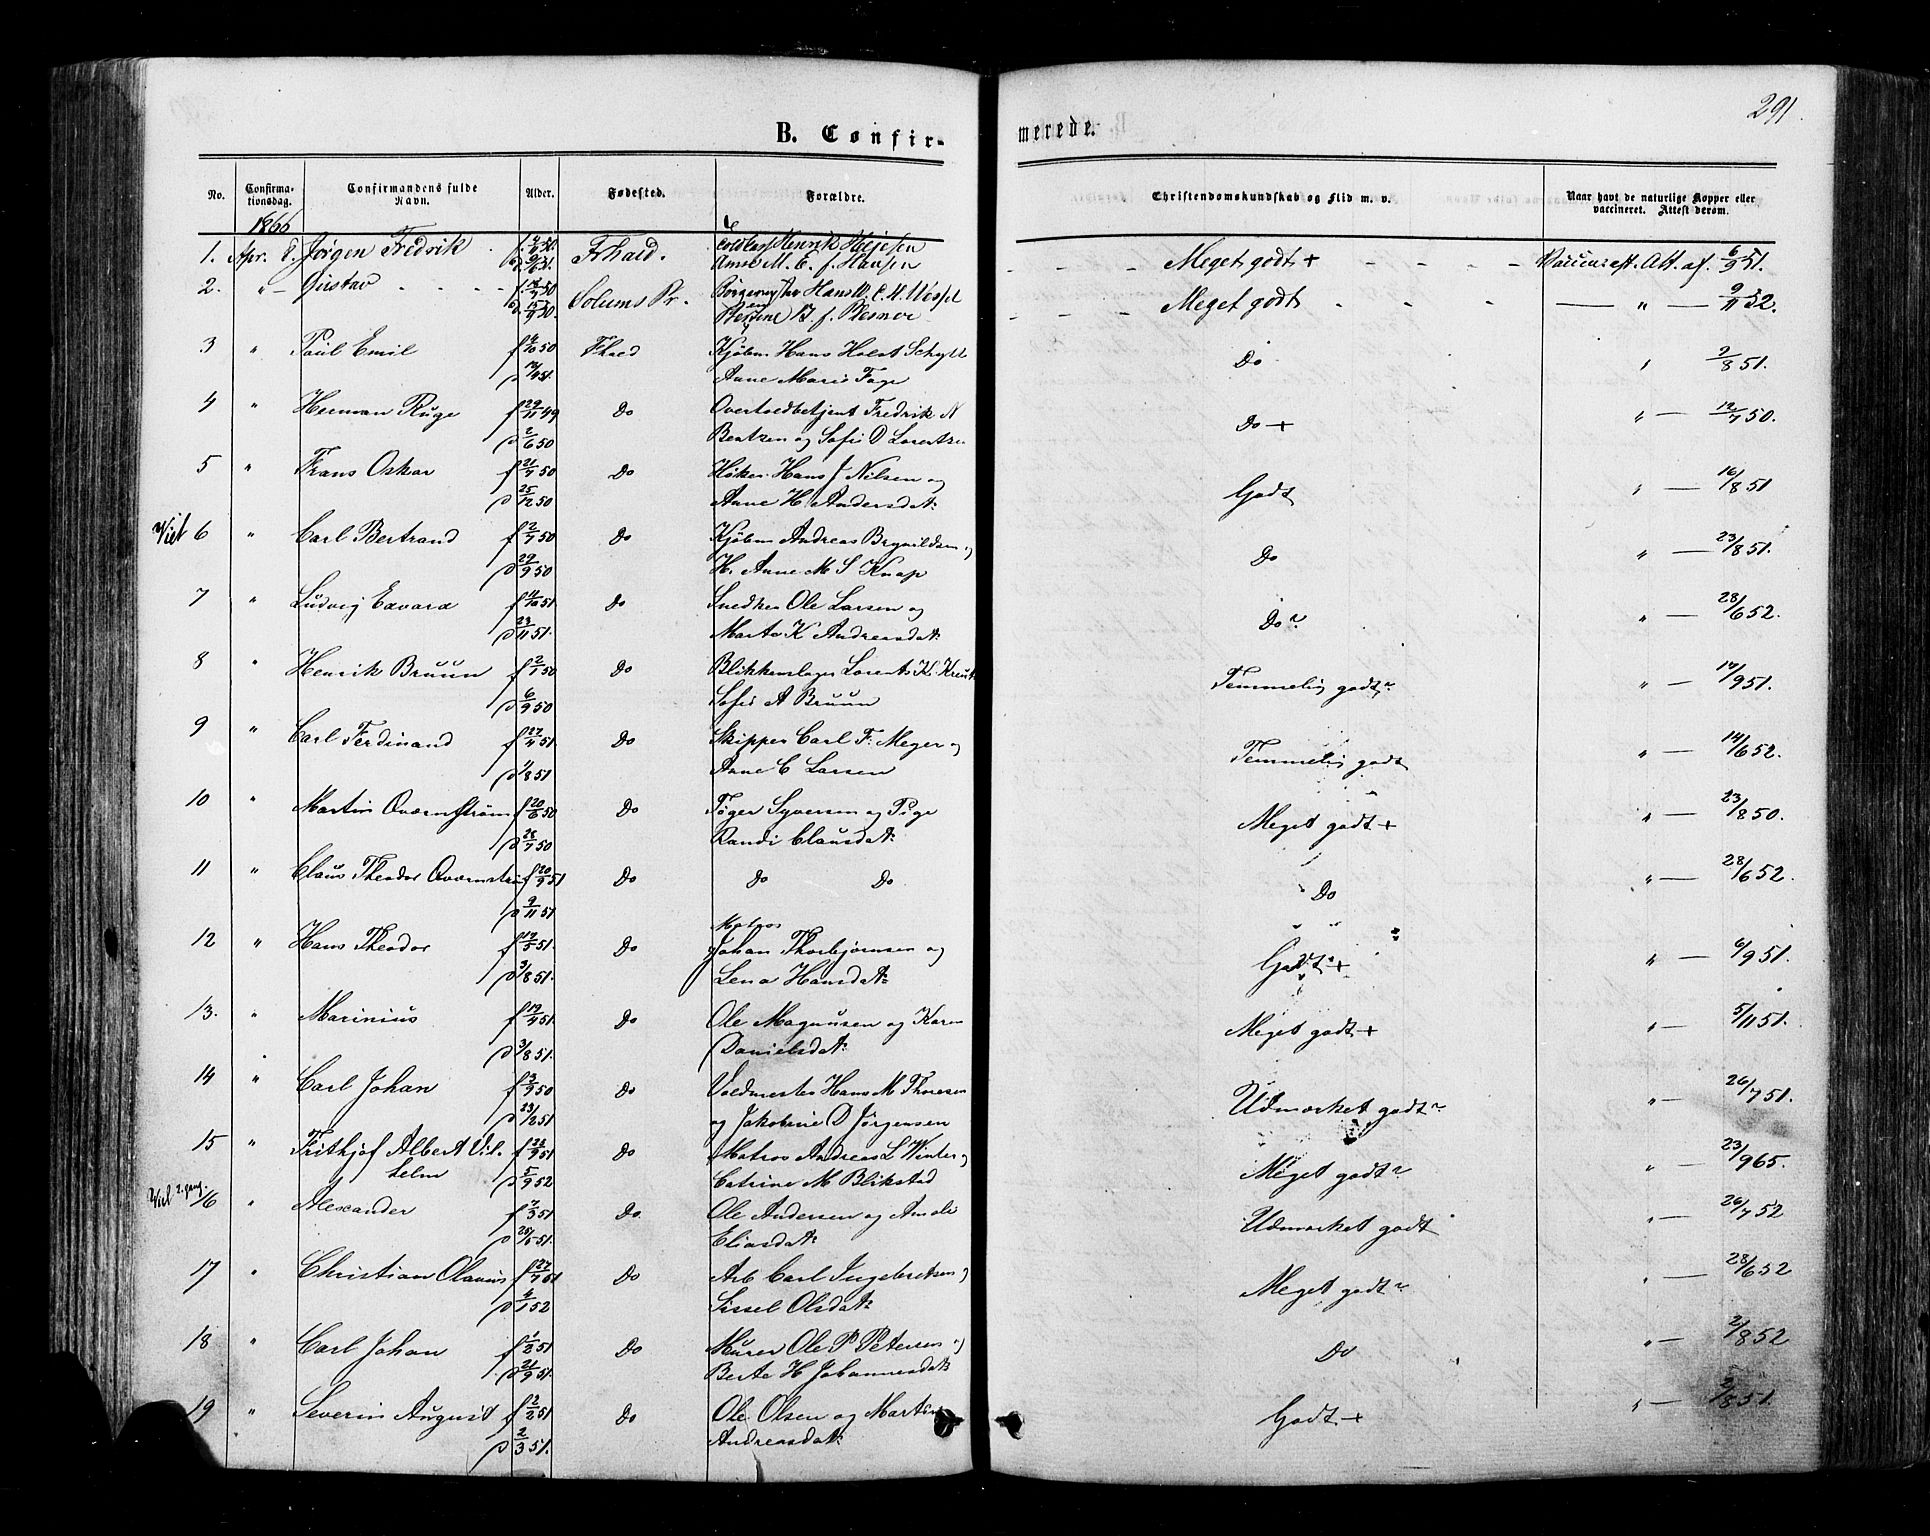 291.
B. Confir- merede.
No. Confirma-tionsdag. Confirmandens fulde Navn. Alder. Fødested. Forældre. Christendomskundskab og Flid m. v. Naar havt de naturlige Kopper eller vaccineret. Attest derom.
1866
1. Apr. 8. Jørgen Fredrik f. Frhald. Henrik Meget godt + Vaccineret. Att. af. 6/9 51.
Anne M. E. f. Hansen
2. "- Gustav Solums Pr. Hans Meget godt " — 9/11 52.
3 " Paul Emil f 50 Fhald Kjøbm Hans Holst Do " 9/8 51.
Anne Marie
4 " Herman Ruge f 29/11 49 Do Overtoldbetjent Fredrik N Do + " — 12/7 50.
d 2/6 50 Bentzen og Sofie D Lorentzen
5 " Frans Oskar f 21/7 50 Do Høker Hans J Nilsen og Godt " — 16/8 51
d 25/12 50 Anne H Andersdat:
Viet 6 " Carl Bertrand f 2/7 50 Do Kjøbm Andreas Brynildsen og Do " — 23/8 51.
d 29/9 50 H. Anne M S Knap
7 " Ludvig Edvard f 11/10 51 Do Snedker Ole Larsen og Do " — 28/6 52.
d 23/11 51. Marte K Andreasdat:
8 " Henrik Bruun f 2/1 50 Do Blikkenslager Lorents K. Temmelig godt " — 17/9 51.
d 6/9 50 Sofie A Bruun
9 " Carl Ferdinand f 27/4 51. Do Skipper Carl F. Meyer og Temmelig godt " — 14/6 52.
d 1/8 51 Anne C Larsen
10 " Martin Qværnstrøm f 20/6 50 Do Tøger Syversen og Pige Meget godt + " — 23/8 50.
d 28/7 50 Randi Clausdat:
11 " Claus Theodor f 20/9 51 Do Do Do Do " — 28/6 52.
d 9/11 51
Matros
12 " Hans Theodor f 17/5 51. Do Johan Thorbjørnsen og Godt + " — 6/9 51.
d 3/8 51. Lena Hansdat:
13. " Marinius f 19/4 51. Do Ole Magnusen og Karen Meget godt + " — 5/11 51.
d 3/8 51. Danielsdat:
14 " Carl Johan f 3/9 50 Do Hans M Thoresen Udmærket godt " — 26/7 51.
d 23/2 51 og Jakobine D Jørgensen
15 " Frithjof Albert Vil- f 51 Do Matros Andreas L Winter og Meget godt " — 23/9 65.
helm d 5/9 52 Catrine M Blikstad
Viet 2. gang. 16 " Alexander f 2/3 51 Do. Ole Andersen og Amalie Udmærket godt " — 26/7 52
d 51. Eliasdat:
17 " Christian Olavus f 27/7 51 Do Arb Carl Ingebretsen og Meget godt " — 28/6 52
d 4/1 52 Sissel Olsdat:
18 " Carl Johan f 1/2 51 Do Murer Ole P Petersen og Do " — 2/8 52
d 21/9 51. Berte H Johannesdat:
19 " Severin August f 2/2 51 Do Ole Olsen og Martine Godt + " — 2/8 51.
d 2/3 51. Andreasdat: